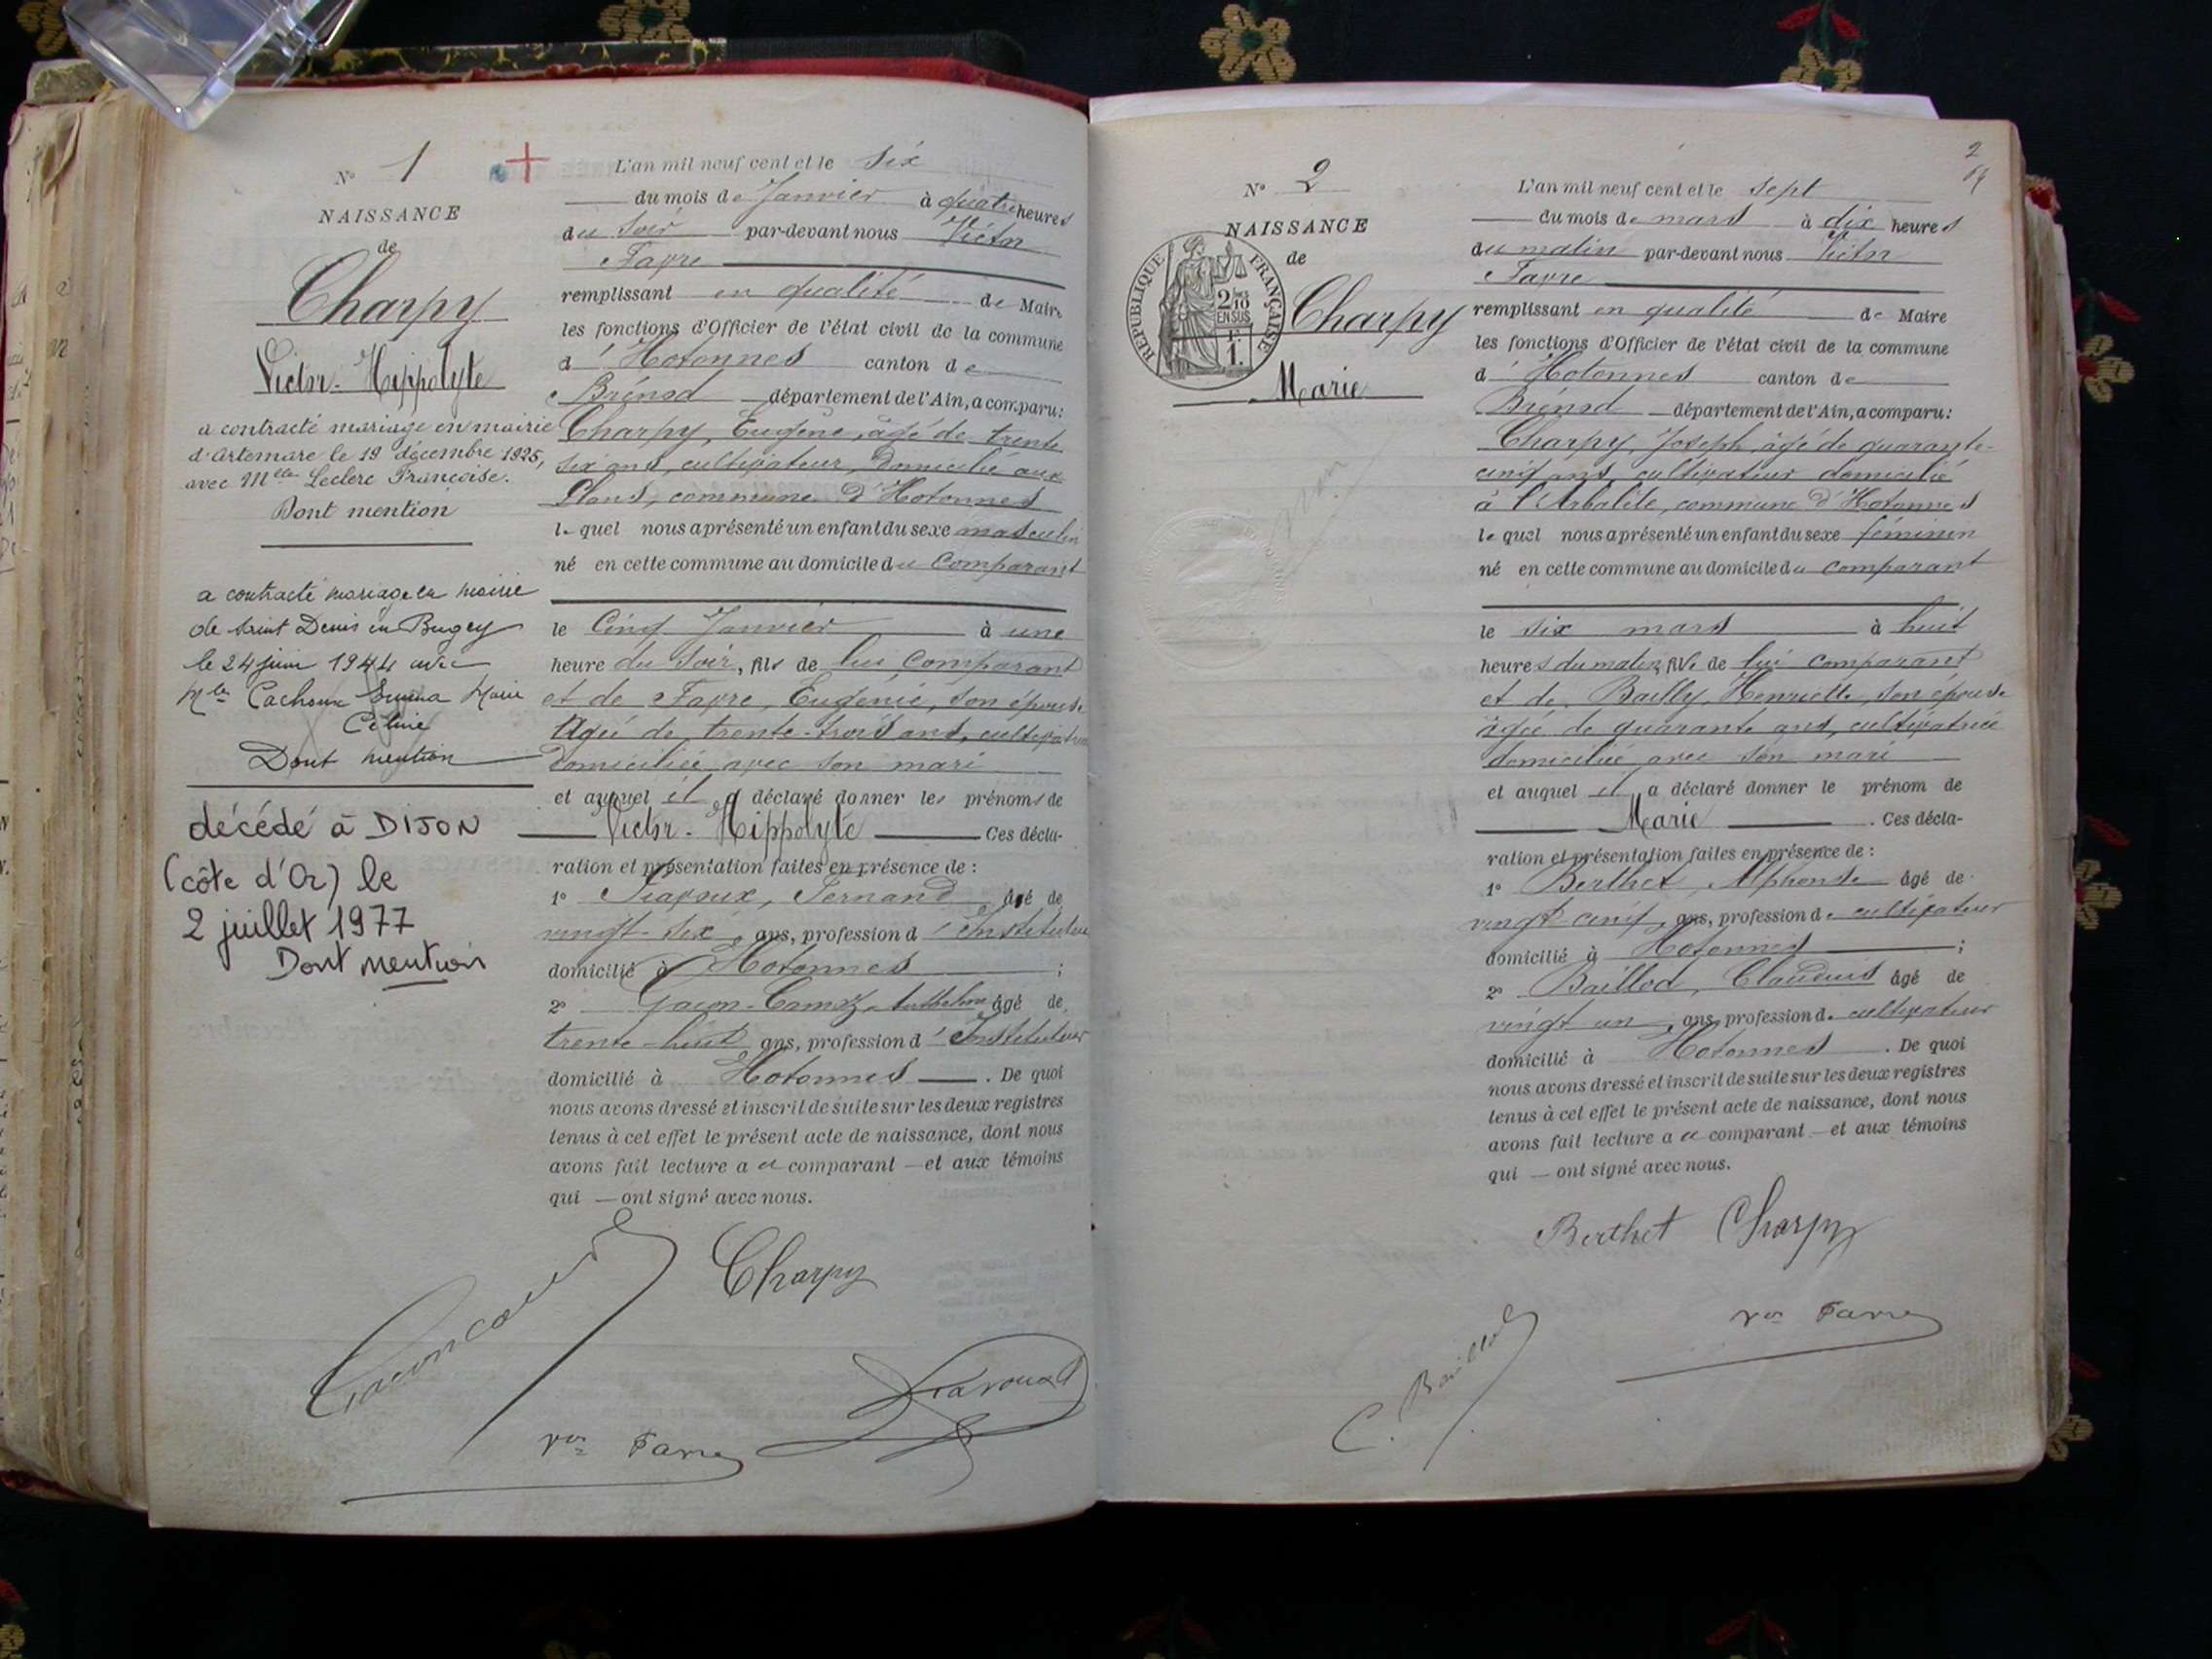 N° 1 +
NAISSANCE
de
Charpy
Victor-Hippolyte
a contracté mariage en mairie
d'Artemare le 19 décembre 1925,
avec Mlle Leclerc Françoise.
Dont mention
a contracté mariage en mairie
de Saint Denis en Bugey
le 24 juin 1944 avec
Mlle Cachoux Emma Marie
Céline
Dont mention
décédé à DIJON
(côte d'Or) le
2 juillet 1977
Dont mention
L'an mil neuf cent et le six
du mois de Janvier à quatre heures
du soir par-devant nous Victor
Favre
remplissant en qualité de Maire
les fonctions d'Officier de l'état civil de la commune
d'Hotonnes canton de
Brénod département de l'Ain, a comparu:
Charpy, Eugène, âgé de trente
six ans, cultivateur, domicilié aux
Plans, commune d'Hotonnes
lequel nous a présenté un enfant du sexe masculin
né en cette commune au domicile du comparant
le Cinq Janvier à une
heure du soir, fils de lui comparant
et de Favre, Eugénie, son épouse
âgée de trente-trois ans, cultivatrice
domiciliée avec son mari
et auquel il a déclaré donner les prénoms de
Victor-Hippolyte Ces décla-
ration et présentation faites en présence de:
1° Fernand âgé de
vingt-six ans, profession d'Instituteur
domicilié à Hotonnes ;
2° Gacon-Camoz âgé de
trente-huit ans, profession d'Instituteur
domicilié à Hotonnes. De quoi
nous avons dressé et inscrit de suite sur les deux registres
tenus à cet effet le présent acte de naissance, dont nous
avons fait lecture au comparant et aux témoins
qui ont signé avec nous.
Charpy
Vor Favre
2
N° 2
NAISSANCE
de
REPUBLIQUE FRANÇAISE
2/10
EN SUS
1.
Charpy
Marie
L'an mil neuf cent et le sept
du mois de mars à dix heures
du matin par-devant nous Victor
Favre
remplissant en qualité de Maire
les fonctions d'Officier de l'état civil de la commune
d'Hotonnes canton de
Brénod département de l'Ain, a comparu:
Charpy, Joseph, âgé de quarante-
cinq ans, cultivateur domicilié
à l'Arbalète, commune d'Hotonnes
lequel nous a présenté un enfant du sexe féminin
né en cette commune au domicile du comparant
le six mars à huit
heures du matin, fille de lui comparant
et de Bailly, Henriette, son épouse
âgée de quarante ans, cultivatrice
domiciliée avec son mari
et auquel il a déclaré donner le prénom de
Marie. Ces décla-
ration et présentation faites en présence de:
1° Berthet, Alphonse âgé de
vingt-cinq ans, profession de cultivateur
domicilié à Hotonnes ;
2° Baillod, Claudius âgé de
vingt un ans, profession de cultivateur
domicilié à Hotonnes. De quoi
nous avons dressé et inscrit de suite sur les deux registres
tenus à cet effet le présent acte de naissance, dont nous
avons fait lecture au comparant et aux témoins
qui ont signé avec nous.
Berthet Charpy
C. Baillod
Vor Favre